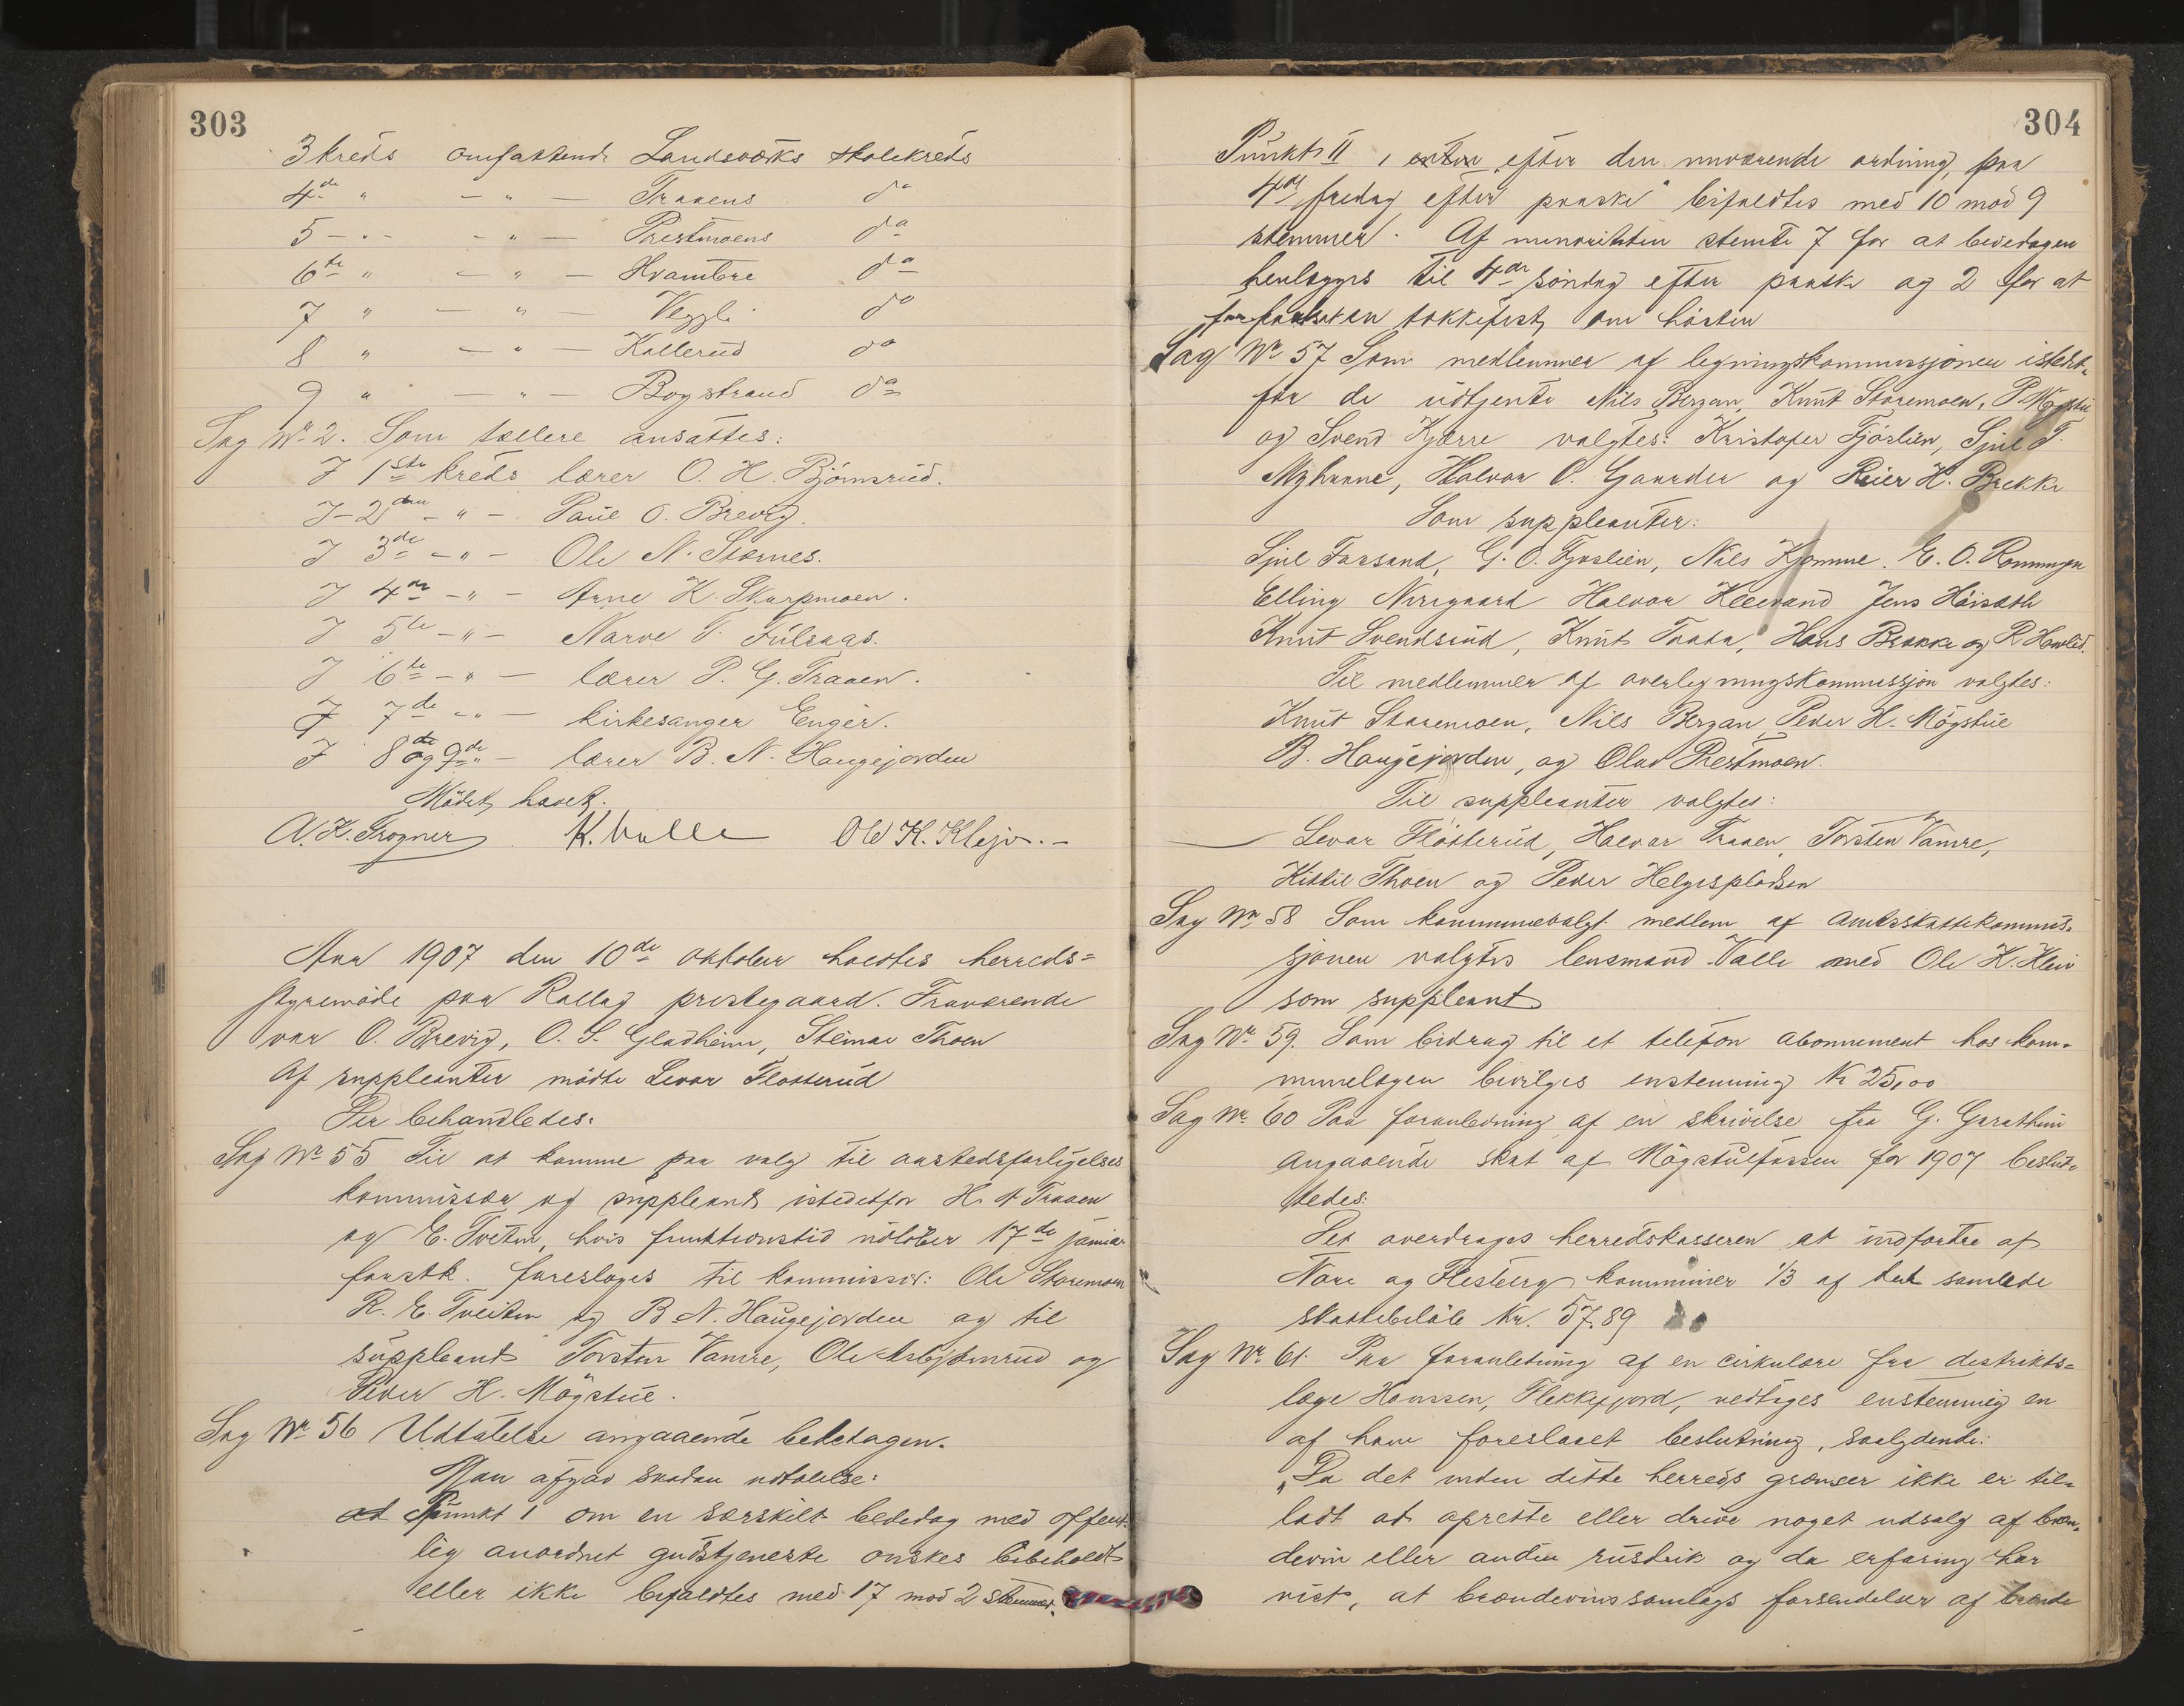 303
3 kreds omfattende Landsværks skolekreds
4de " — " — Traaens do
5 — " — — " — Prestmoens do
6te " — " — Hvambre do
7 " — " — Veggli do
8 " — " — Kollerud do
9 " — " — Bogstrand do
Sag No 2. Som tællere ansattes:
I 1ste kreds lærer O. H. Bjömsrud.
I 2den — " — Paul O. Brevig.
I 3de — " — Ole N. Stærnes.
I 4de — " — Arne K. Skarpmoen.
I 5te — " — Narve T. Fulsaas.
I 6te — " — lærer P. G. Traaen.
I 7de — " — kirkesanger Enger.
I 8de og 9de " — lærer B. N. Haugejorden
Mödet hævet.
A. K. Trogner K. Valle Ole K. Kleiv. —
Aar 1907 den 10de oktober holdtes herreds=
styremöde paa Rollag prestegaard. Fraværende
var O. Brevig, O. S. Gladheim, Steinar Thoen
Af suppleanter mödte Levor Flotterud
Der behandledes:
Sag No 55 Til at komme paa valg til aastedsforligelses
kommissær og suppleant istedetfor H. A Traaen
og E. Tveten, hvis funktionstid udlöber 17de januar
förstk. foreslages til kommissær: Ole Storemoen
R. E. Tveiten og B. N. Haugejorden og til
suppleant Torsten Vamre, Ole Asbjömrud og
Peder H. Mögstue.
Sag No 56 Udtalelse angaaende bededagen.
Man afgav saadan udtalelse:
ad Punkt 1 om en særskilt bededag med offent-
lig anordnet gudstjeneste önskes bibeholdt
eller ikke bifaldtes med 17 mod 2 stemmer.
304
Punkt II, enten efter den nuværende ordning, paa
4de fredag efter paaske" bifaldtes med 10 mod 9
stemmer. Af minoriteten stemte 7 for at bededagen
henlægges til 4de söndag efter paaske og 2 for at
en takkefest om hösten
Sag No 57 Som medlemmer af ligningskommissjonen istedet-
for de udtjente Nils Bergan, Knut Storemoen, P. Mögstue
og Svend Kjærre valgtes: Kristofer Fjöslien, Sjul T.
Myhrane, Halvor O. Gaarder og Reier H. Brekke
Som suppleanter:
Sjul Fossand, G. O. Fjöslien, Nils Kjomme. E. O. Ramungen
Elling Norigaard Halvor Kleivand Jens Höisæth
Knut Svendsrud, Knut Traaen, Hans Brekke og R Hamlid.
Til medlemmer af overligningskommissjon valgtes:
Knut Storemoen, Nils Bergan, Peder H. Mögstue
B. Haugejorden, og Olav Prestmoen.
Til suppleanter valgtes:
Levor Flotterud, Halvor Traaen, Torsten Vamre,
Kittil Thoen og Peder Helgespladsen
Sag No 58 Som kommunevalgt medlem af amtsskattekommis-
sjonen valgtes lensmand Valle med Ole K. Kleiv
som suppleant
Sag No 59. Som bidrag til et telefon abonnement hos kom-
munelægen bevilges enstemmig Kr 25,00
Sag No 60 Paa foranledning af en skrivelse fra G. Garathun
angaaende skat af Mögstufossen for 1907 beslut-
tedes:
Det overdrages herredskassereren at indfordre af
Nore og Flesberg kommuner 1/3 af det samlede
skattebelöb Kr. 57.89
Sag No 61. Paa foranledning af en cirkulære fra distrikts=
læge Hanssen, Flekkefjord, vedtages enstemmig en
af ham foreslaaet beslutning, saalydende:
"Da det inden dette herreds grænser ikke er til-
ladt at oprette eller drive noget udsalg af bræn-
devin eller anden rusdrik og da erfaring har
vist, at brændevinssamlags forsendelser af brænde